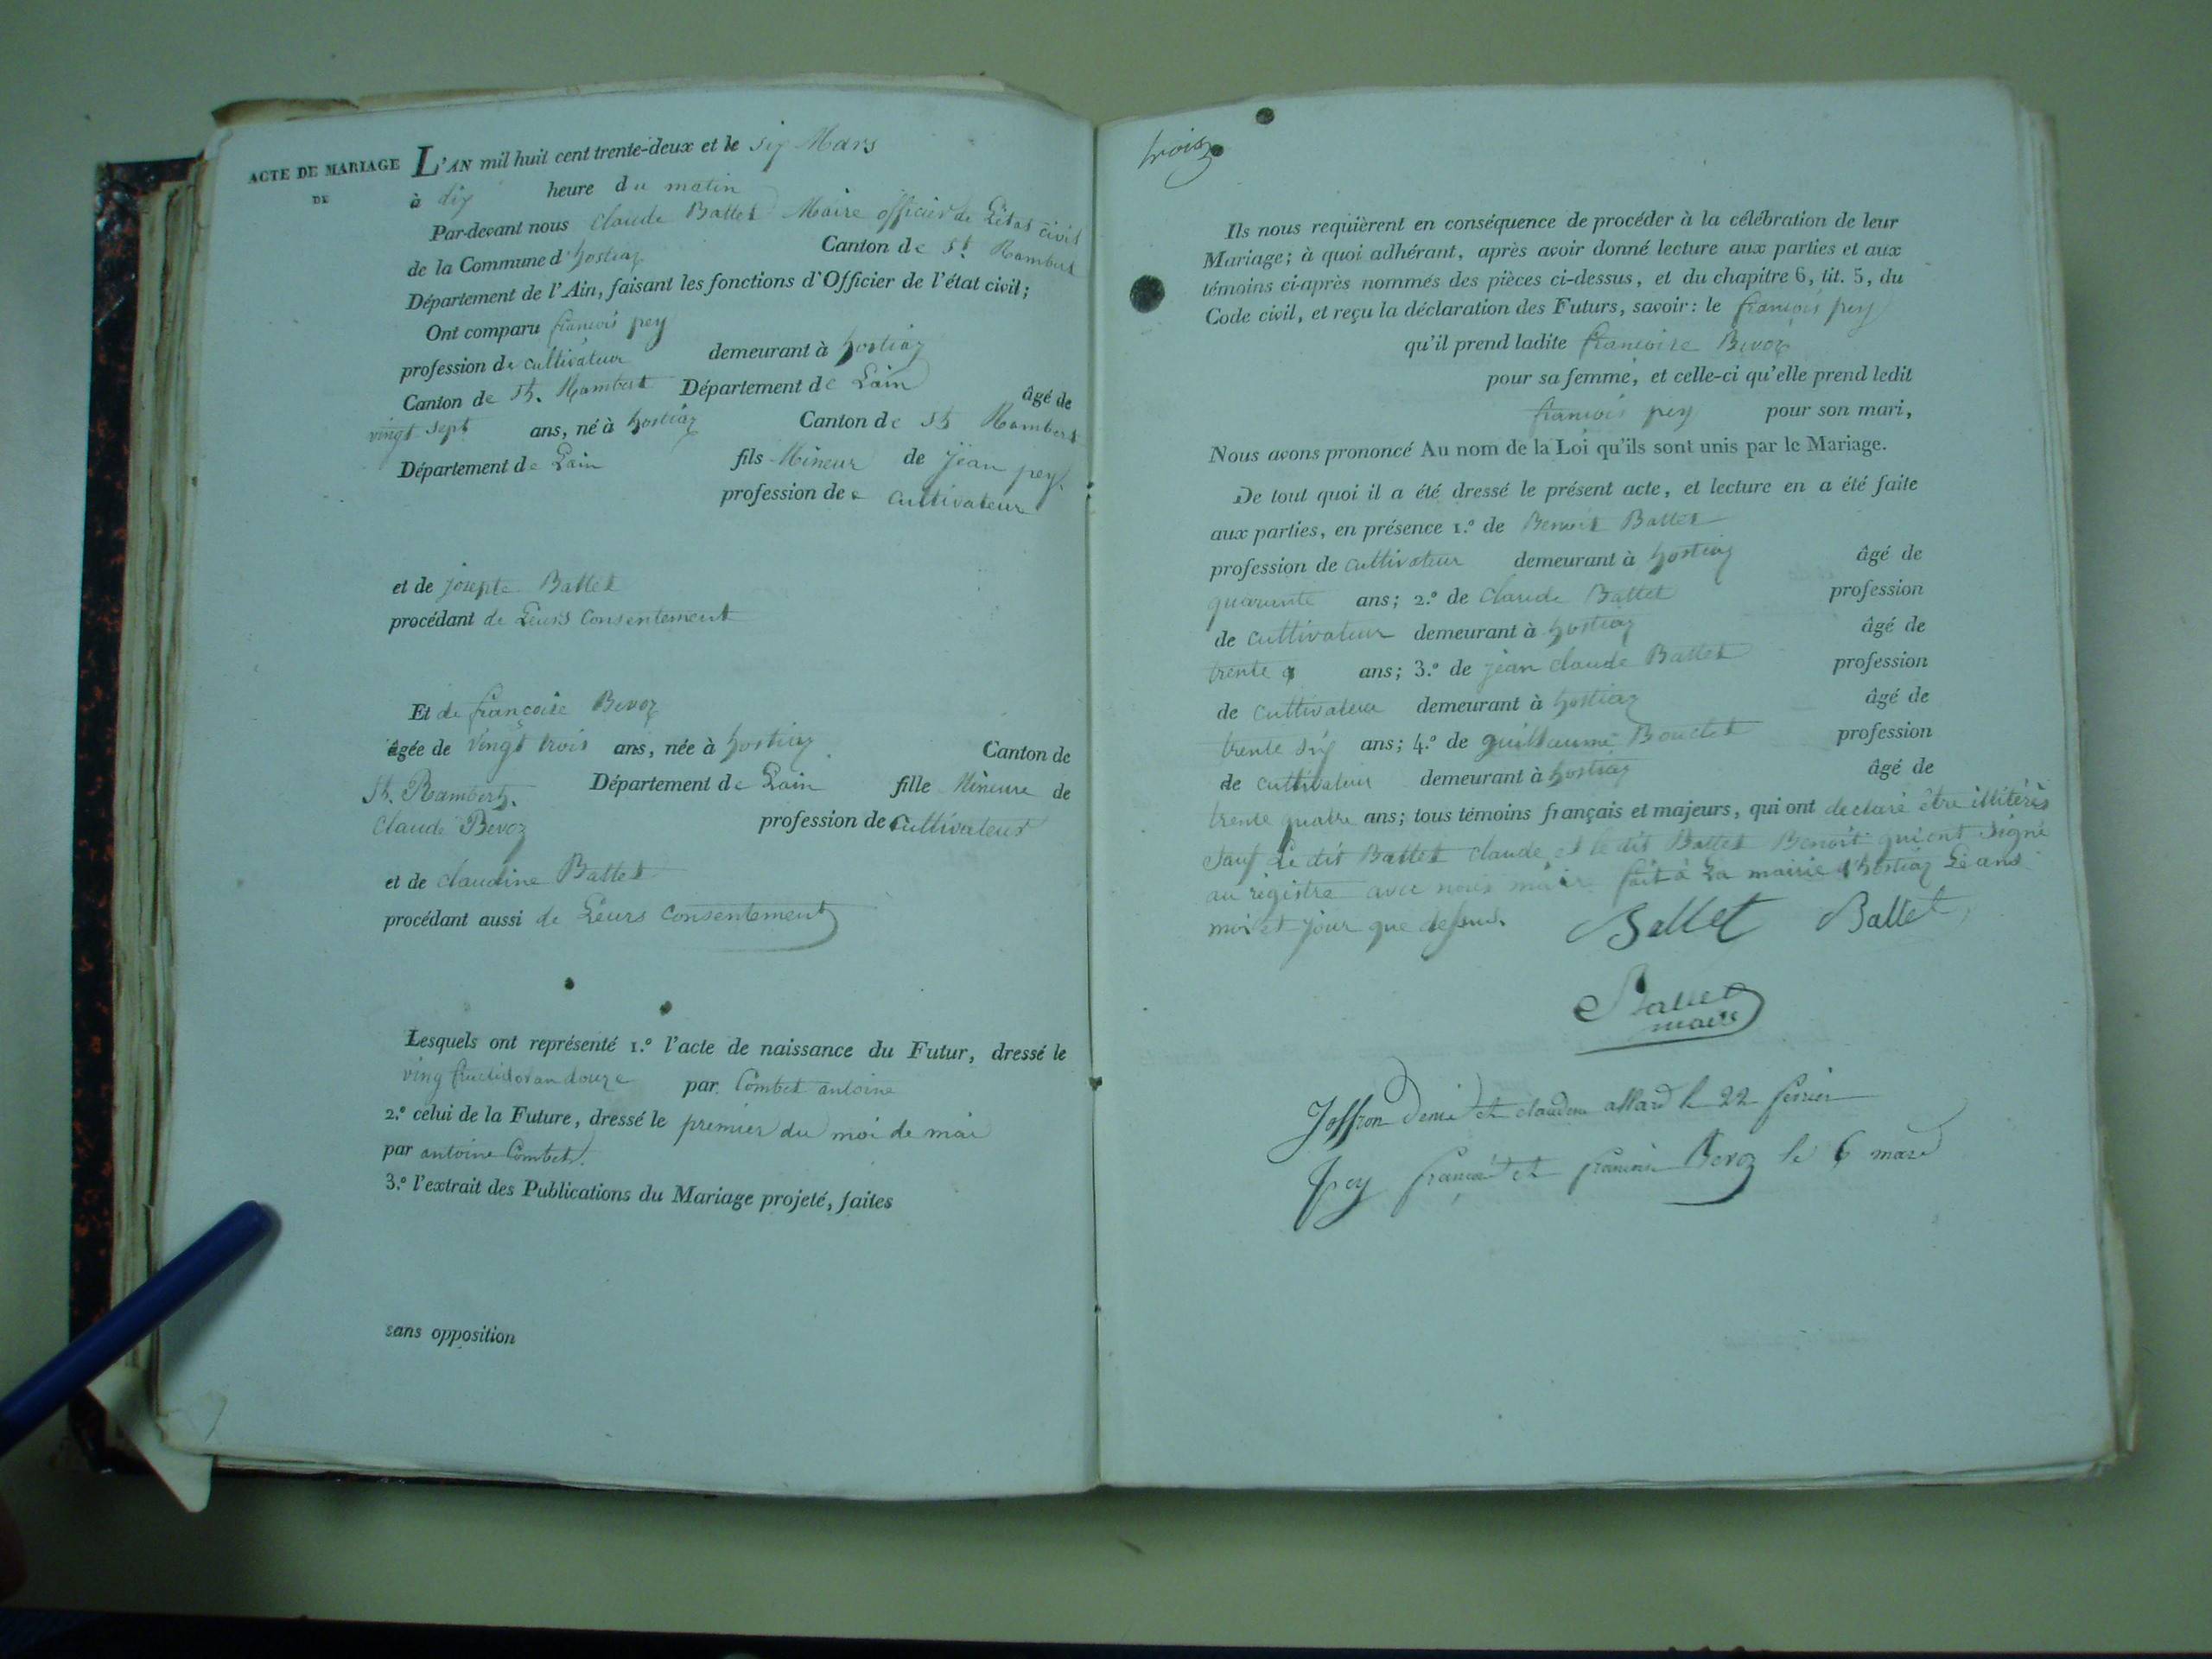 ACTE DE MARIAGE
DE
L'AN mil huit cent trente-deux et le six Mars
à dix heure du matin
Par-devant nous Claude Ballet Maire officier de L'état civil
de la Commune d'hostiaz Canton de St. Rambert
Département de l'Ain, faisant les fonctions d'Officier de l'état civil;
Ont comparu françois pey
profession de cultivateur demeurant à hostiaz
Canton de St. Rambert Département de Lain âgé de
vingt sept ans, né à hostiaz Canton de St Rambert
Département de Lain fils Mineur de jean pey.
profession de cultivateur
et de josepte Ballet
procédant de Leurs Consentement
Et de françoise Bevoz
âgée de vingt trois ans, née à hostiaz Canton de
St. Rambert. Département de Lain fille Mineure de
Claude Bevoz profession de Cultivateur
et de claudine Ballet
procédant aussi de Leurs Consentement
Lesquels ont représenté 1.° l'acte de naissance du Futur, dressé le
ving fructidor an douze par Combet antoine
2.° celui de la Future, dressé le premier du moi de mai
par antoine Combet.
3.° l'extrait des Publications du Mariage projeté, faites
sans opposition
trois
Ils nous requièrent en conséquence de procéder à la célébration de leur
Mariage; à quoi adhérant, après avoir donné lecture aux parties et aux
témoins ci-après nommés des pièces ci-dessus, et du chapitre 6, tit. 5, du
Code civil, et reçu la déclaration des Futurs, savoir: le françois pey
qu'il prend ladite francoise Bevoz
pour sa femme, et celle-ci qu'elle prend ledit
francois pey pour son mari,
Nous avons prononcé Au nom de la Loi qu'ils sont unis par le Mariage.
De tout quoi il a été dressé le présent acte, et lecture en a été faite
aux parties, en présence 1.° de Benoit Ballet
profession de cultivateur demeurant à hostiaz âgé de
quarante ans; 2.° de Claude Ballet profession
de cultivateur demeurant à hostiaz âgé de
trente ans; 3.° de jean claude Ballet profession
de cultivateur demeurant à hostiaz âgé de
trente six ans; 4.° de guillaume Bouclet profession
de cultivateur demeurant à hostiaz âgé de
trente quatre ans; tous témoins français et majeurs, qui ont declaré être illitérés
sauf Le dit Ballet Claude et le dit Ballet Benoit qui ont signé
au registre avec nous maire fait à La mairie d'hostiaz Le ans
moi et jour que dessus. Ballet Ballet
Ballet
maire
Joffron Denis et claudine allard le 22 fevrier
pey françois et francoise Bevoz le 6 mars